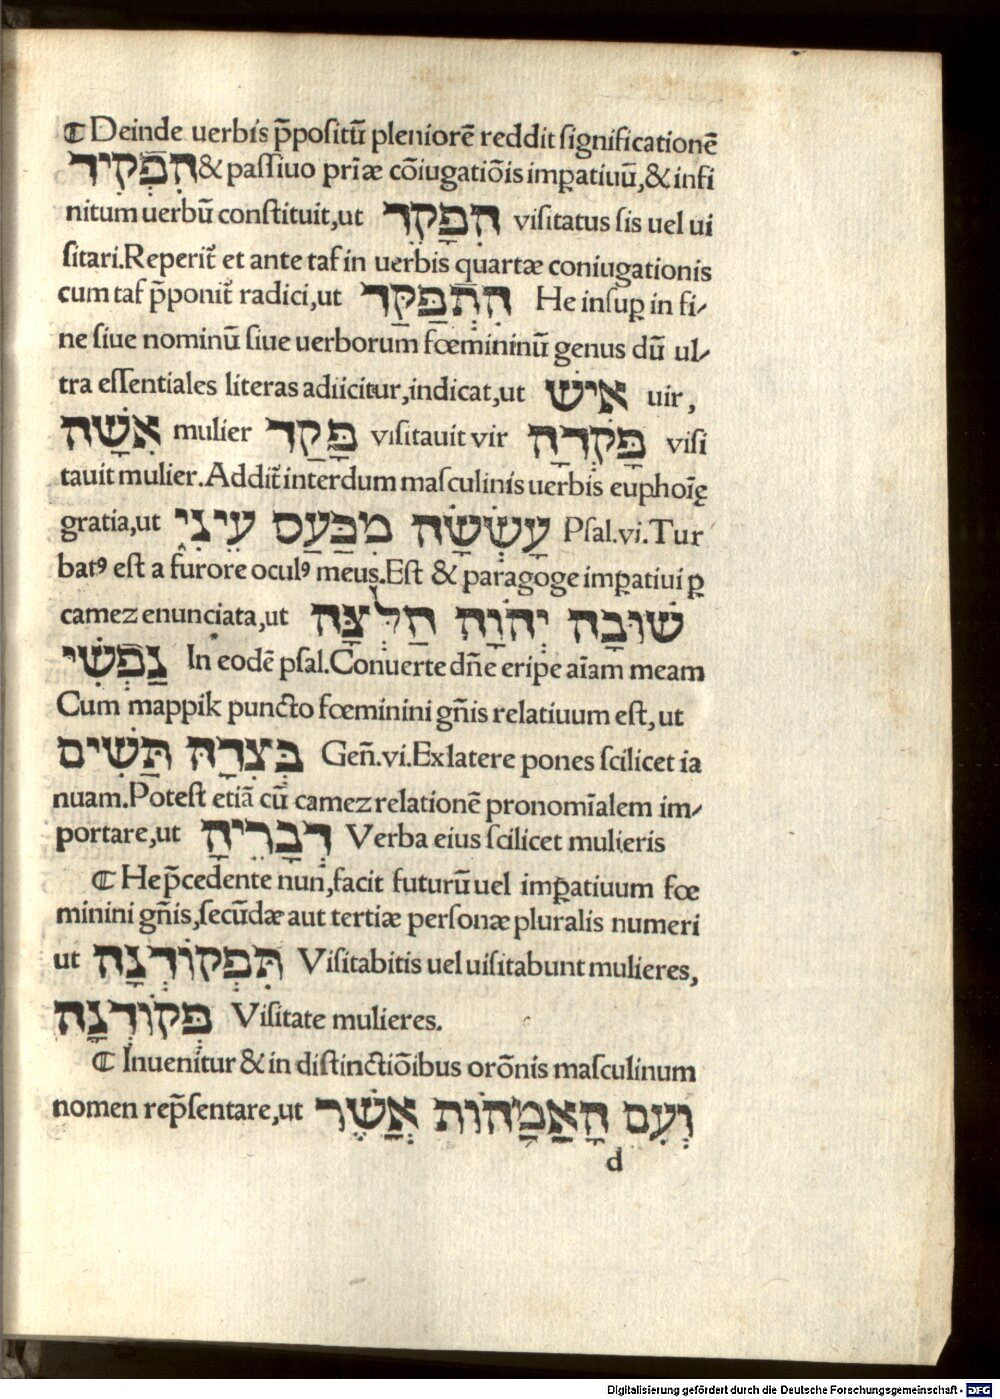 ℂ Deinde uerbis p̄positū pleniorē reddit significationē
הִפְקִיד & passiuo priæ cōiugatiōis imꝑatiuū, & infi
nitum uerbū constituit, ut הִפָּקֵד visitatus sis uel ui
sitari. Reperit̃ et ante taf in uerbis quartæ coniugationis
cum taf p̄ponit̃ radici, ut הִתְפַּקֵּד He insuꝑ in fi⸗
ne siue nominū siue uerborum fœmininū genus dū ul⸗
tra essentiales literas adiicitur, indicat, ut אִישׁ uir,
אִשָּׁה mulier פָּקַד visitauit vir פָּקְדָה visi
tauit mulier. Addit̃ interdum masculinis uerbis euphoīę
gratia, ut עָשְׁשָׁה מִכַּעַס עֵינִי Psal.vi. Tur
batꝰ est a furore oculꝰ meus. Est & paragoge imꝑatiui ꝑ
camez enunciata, ut שׁוּבָה יְהֹוָה חַלְּצָה
נַפְשִׁי In eodē psal. Conuerte dn̄e eripe aīam meam
Cum mappik puncto fœminini gn̄is relatiuum est, ut
בְּצִדָּהּ תַּשִׂים Gen̄.vi. Ex latere pones scilicet ia
nuam. Potest etiā cū camez relationē pronomīalem im⸗
portare, ut דְּבָרֶיהָ Verba eius scilicet mulieris
ℂ He p̄cedente nun, facit futurū uel imꝑatiuum fœ
minini gn̄is, secūdæ aut tertiæ personæ pluralis numeri
ut תִּפְקוֹדְנָה Visitabitis uel uisitabunt mulieres,
פְּקוֹדְנָה Visitate mulieres.
ℂ Inuenitur & in distinctiōibus orōnis masculinum
nomen rep̄sentare, ut וְעִם הָאֲמָהוֹת אֲשֶׁר
d
Digitalisierung gefördert durch die Deutsche Forschungsgemeinschaft - DFG